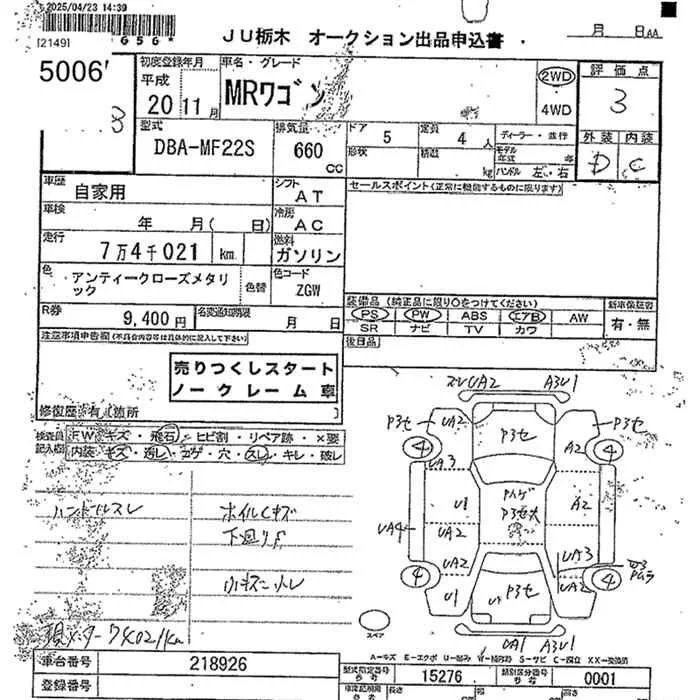 2025/04/23 14:39
[2149]
656*
JU栃木 オークション出品申込書
月 日 AA
5006
初度登録年月
平成
20 11月
車名・グレード
MRワゴン
2WD
4WD
評価点
3
外装 内装
D C
型式
DBA-MF22S
排気量
660
CC
ドア 5
定員 4 人
形状
積載 kg
ディーラー・並行
モデル年式 年
ハンドル 左・右
車歴
自家用
シフト
AT
セールスポイント(正常に機能するものに限ります)
車検
年 月( 日)
冷房
AC
走行
7万4千021 km
燃料
ガソリン
色
アンティークローズメタリ
ック
色替
色コード
ZGW
装備品 (純正品に限り○をつけてください)
PS PW ABS エアB AW
SR ナビ TV カワ
新車保証書
有・無
R券
9,400円
名変通知期限
月 日
後日品
注意事項申告欄(不具合内容等は具体的に記入して下さい)
売りつくしスタート
ノークレーム車
修復歴
箇所
検査員
記入欄
FW キズ・飛石・ヒビ割・リペア跡・×要
内装・キズ・汚レ・コゲ・穴・スレ・キレ・破レ
ハンドルスレ
ホイルCキズ
下廻りS
小キズ凹レ
A3U1
P3セ
UA2
P3セ
P3セ
4
A2
4
UA3
U1
A2
UA4
UA2
UA2
UA3
4
P3セ
UA2
4
U1
UA1 A3U1
スペア
A=キズ E=エクボ U=凹み W=補修跡 S=サビ C=腐食 XX=交換済
車台番号
218926
登録番号
型式指定番号
参考
15276
類別区分番号
参考
0001
長さ
cm